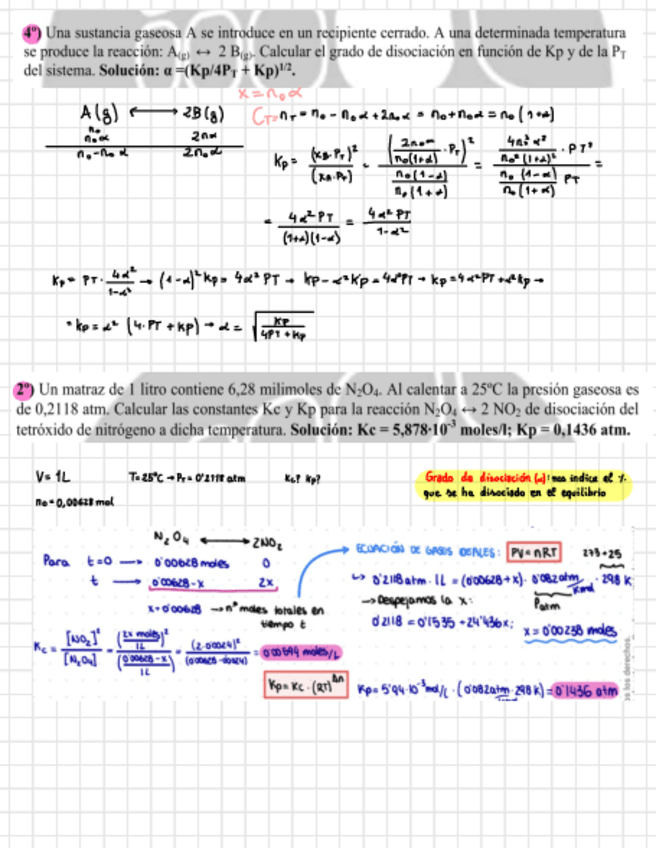 4º) Una sustancia gaseosa A se introduce en un recipiente cerrado. A una determinada temperatura
se produce la reacción: A(g) ↔ 2 B(g). Calcular el grado de disociación en función de Kp y de la PT
del sistema. Solución: α =(Kp/4PT + Kp)^1/2.
x = n₀α
A(g) ⟷ 2B(g)
C T= nT = n₀ - n₀α + 2n₀α = n₀+n₀α = n₀(1+α)
n₀
n₀α 2nα
n₀-n₀α 2n₀α
Kp = (xB·PT)² / (xA·PT) = (2n₀α / n₀(1+α) · PT)² / (n₀(1-α) / n₀(1+α)) = (4n₀²α² / n₀²(1+α)² · PT²) / (n₀(1-α) / n₀(1+α) PT) =
= 4α²PT / (1+α)(1-α) = 4α²PT / 1-α²
Kp = PT · 4α² / 1-α² → (1-α)²Kp = 4α²PT → Kp-α²Kp = 4α²PT → Kp=4α²PT+α²Kp →
= Kp = α² (4·PT+Kp) → α = √(Kp / 4PT+Kp)
2º) Un matraz de 1 litro contiene 6,28 milimoles de N₂O₄. Al calentar a 25ºC la presión gaseosa es
de 0,2118 atm. Calcular las constantes Kc y Kp para la reacción N₂O₄ ↔ 2 NO₂ de disociación del
tetróxido de nitrógeno a dicha temperatura. Solución: Kc = 5,878·10⁻³ moles/l; Kp = 0,1436 atm.
V= 1L T=25ºC → PT= 0'2118 atm Kc? Kp?
Grado de disociación (α): nos indica el %
que se ha disociado en el equilibrio
n₀=0,00628 mol
N₂O₄ ⟷ 2NO₂
ECUACIÓN DE GASES IDEALES: PV=nRT 273+25
Para t=0 → 0'00628 moles 0
t → 0'00628-x 2x
↳ 0'2118 atm · 1L = (0'00628+x) · 0'082 atm / K mol · 298 K
→ Despejamos la x:
x+0'00628 → nº moles totales en
tiempo t
0'2118 = 0'1535 + 24'436x; x = 0'00238 moles
Kc = [NO₂]² / [N₂O₄] = (2x moles / 1L)² / ((0'00628-x) / 1L) = (2·0'0024)² / (0'00628-0'0024) = 0'00594 moles/L
Kp = Kc · (RT)^Δn
Kp= 5'94·10⁻³ mol/L · (0'082 atm · 298 K) = 0'1436 atm
os los derechos.